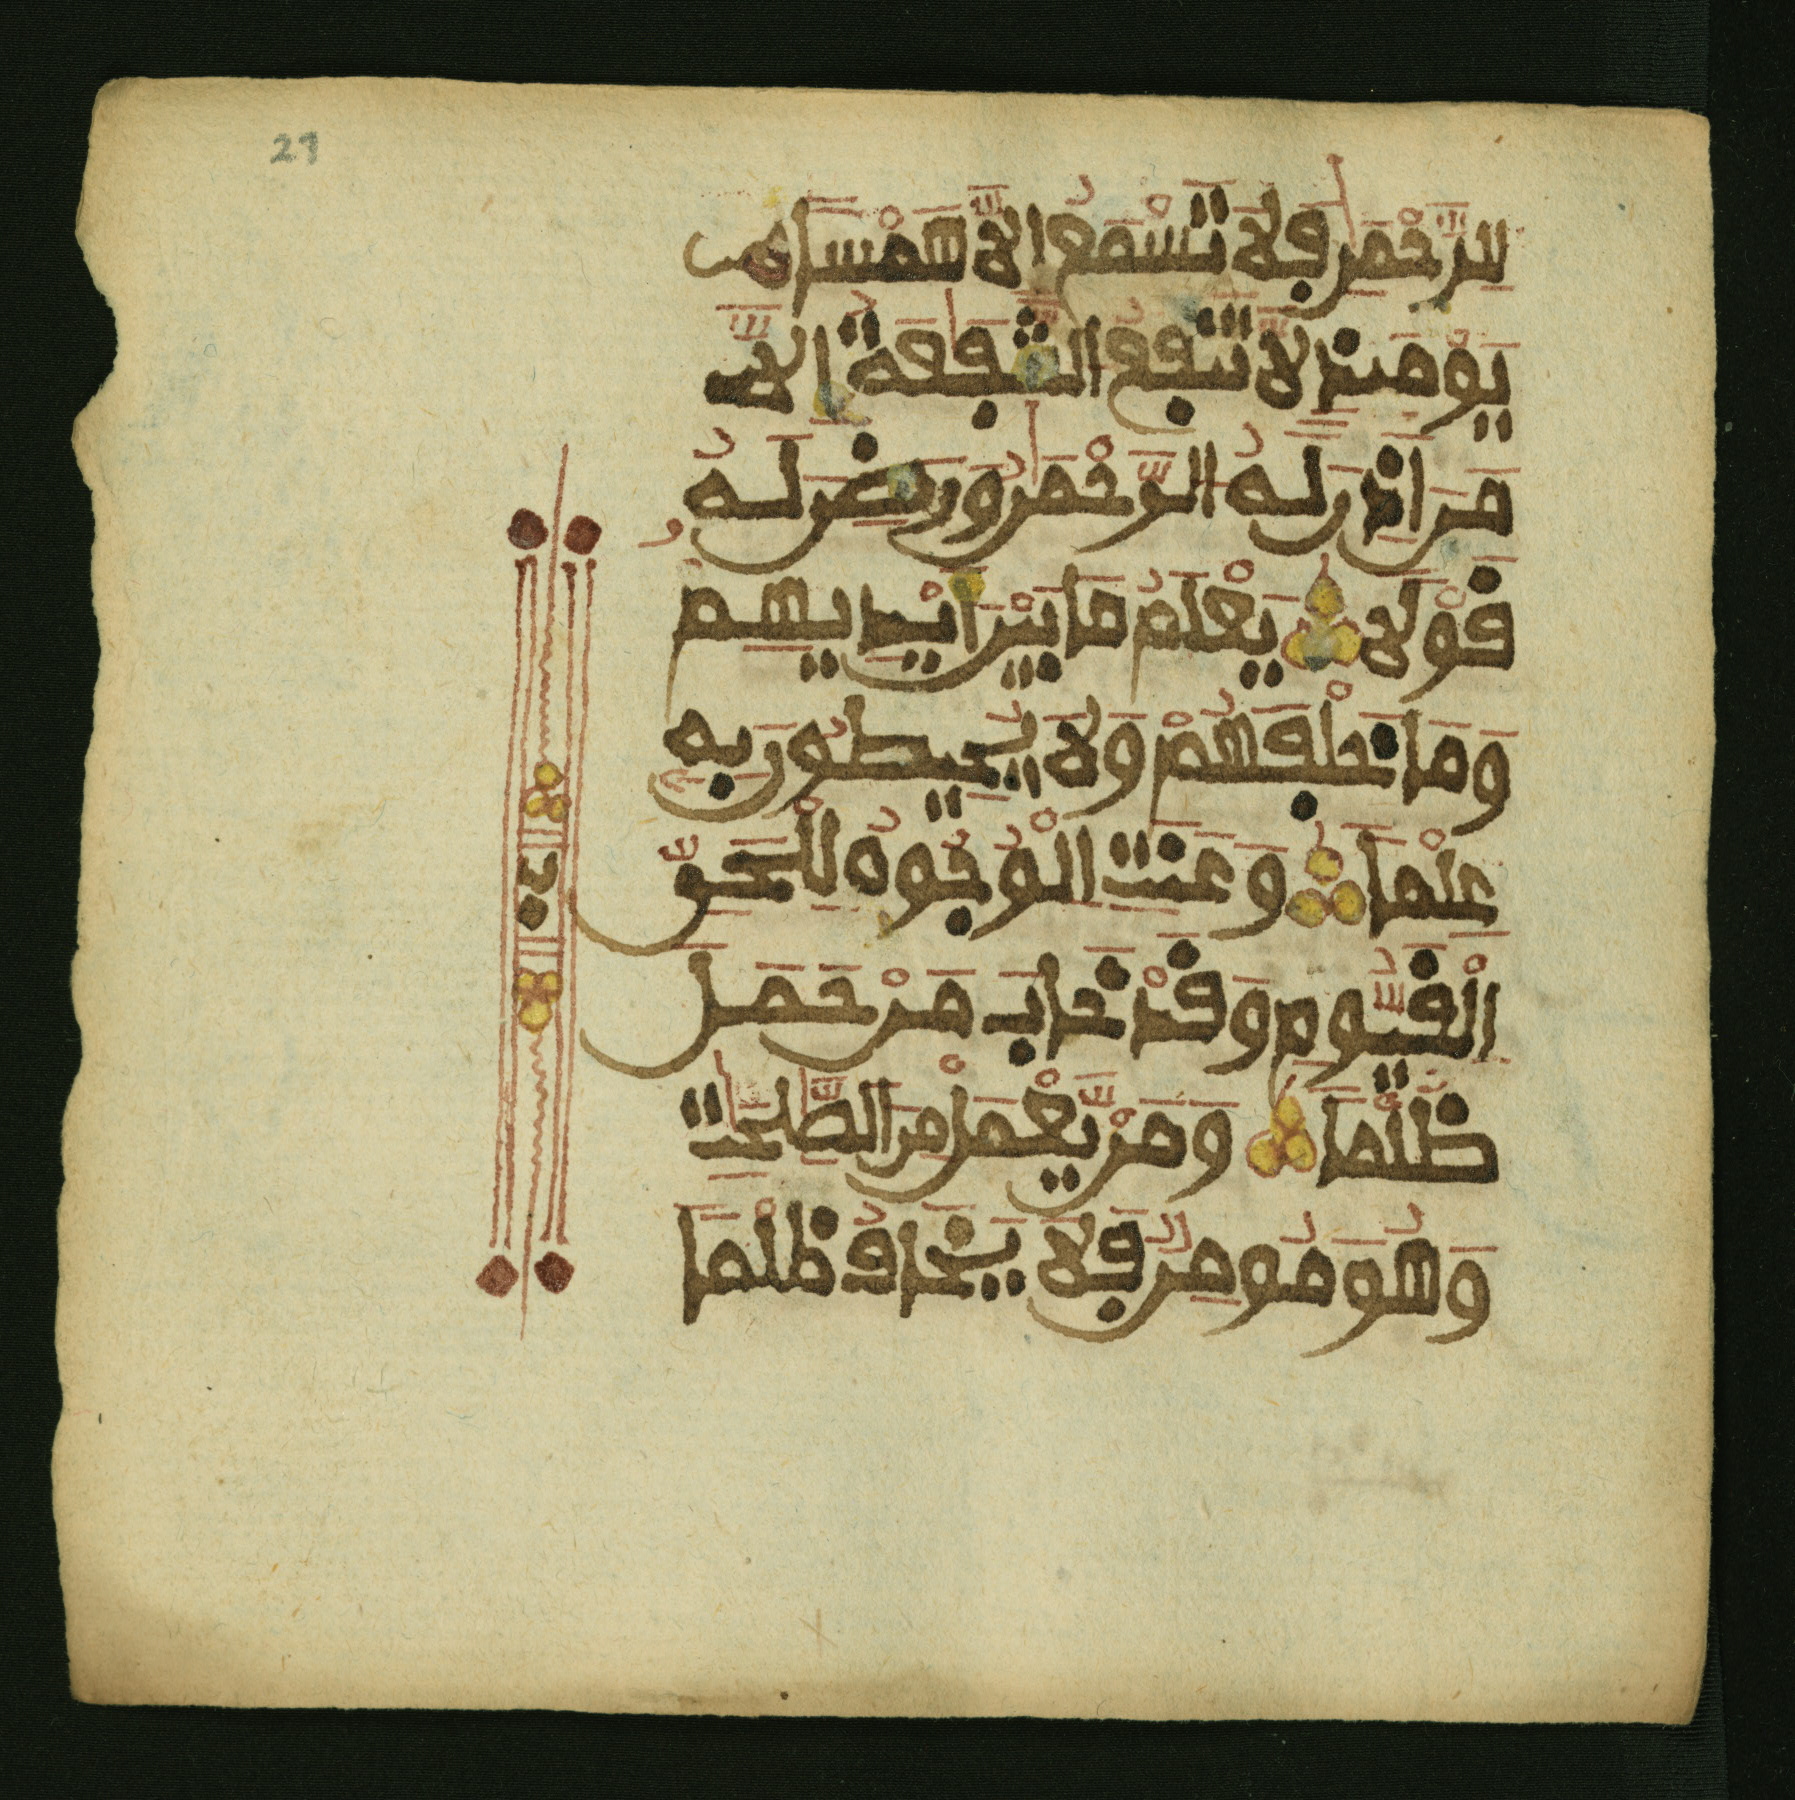 27
لِلرَّحْمَٰنِ فَلَا تَسْمَعُ إِلَّا هَمْسًا
يَوْمَئِذٍ لَا تَنْفَعُ الشَّفَٰعَةُ إِلَّا
مَنْ أَذِنَ لَهُ الرَّحْمَٰنُ وَرَضِيَ لَهُ
قَوْلًا يَعْلَمُ مَا بَيْنَ أَيْدِيهِمْ
وَمَا خَلْفَهُمْ وَلَا يُحِيطُونَ بِهِ
عِلْمًا وَعَنَتِ الْوُجُوهُ لِلْحَيِّ
الْقَيُّومِ وَقَدْ خَابَ مَنْ حَمَلَ
ظُلْمًا وَمَنْ يَعْمَلْ مِنَ الصَّٰلِحَٰتِ
وَهُوَ مُومِنٌ فَلَا يَخَافُ ظُلْمًا